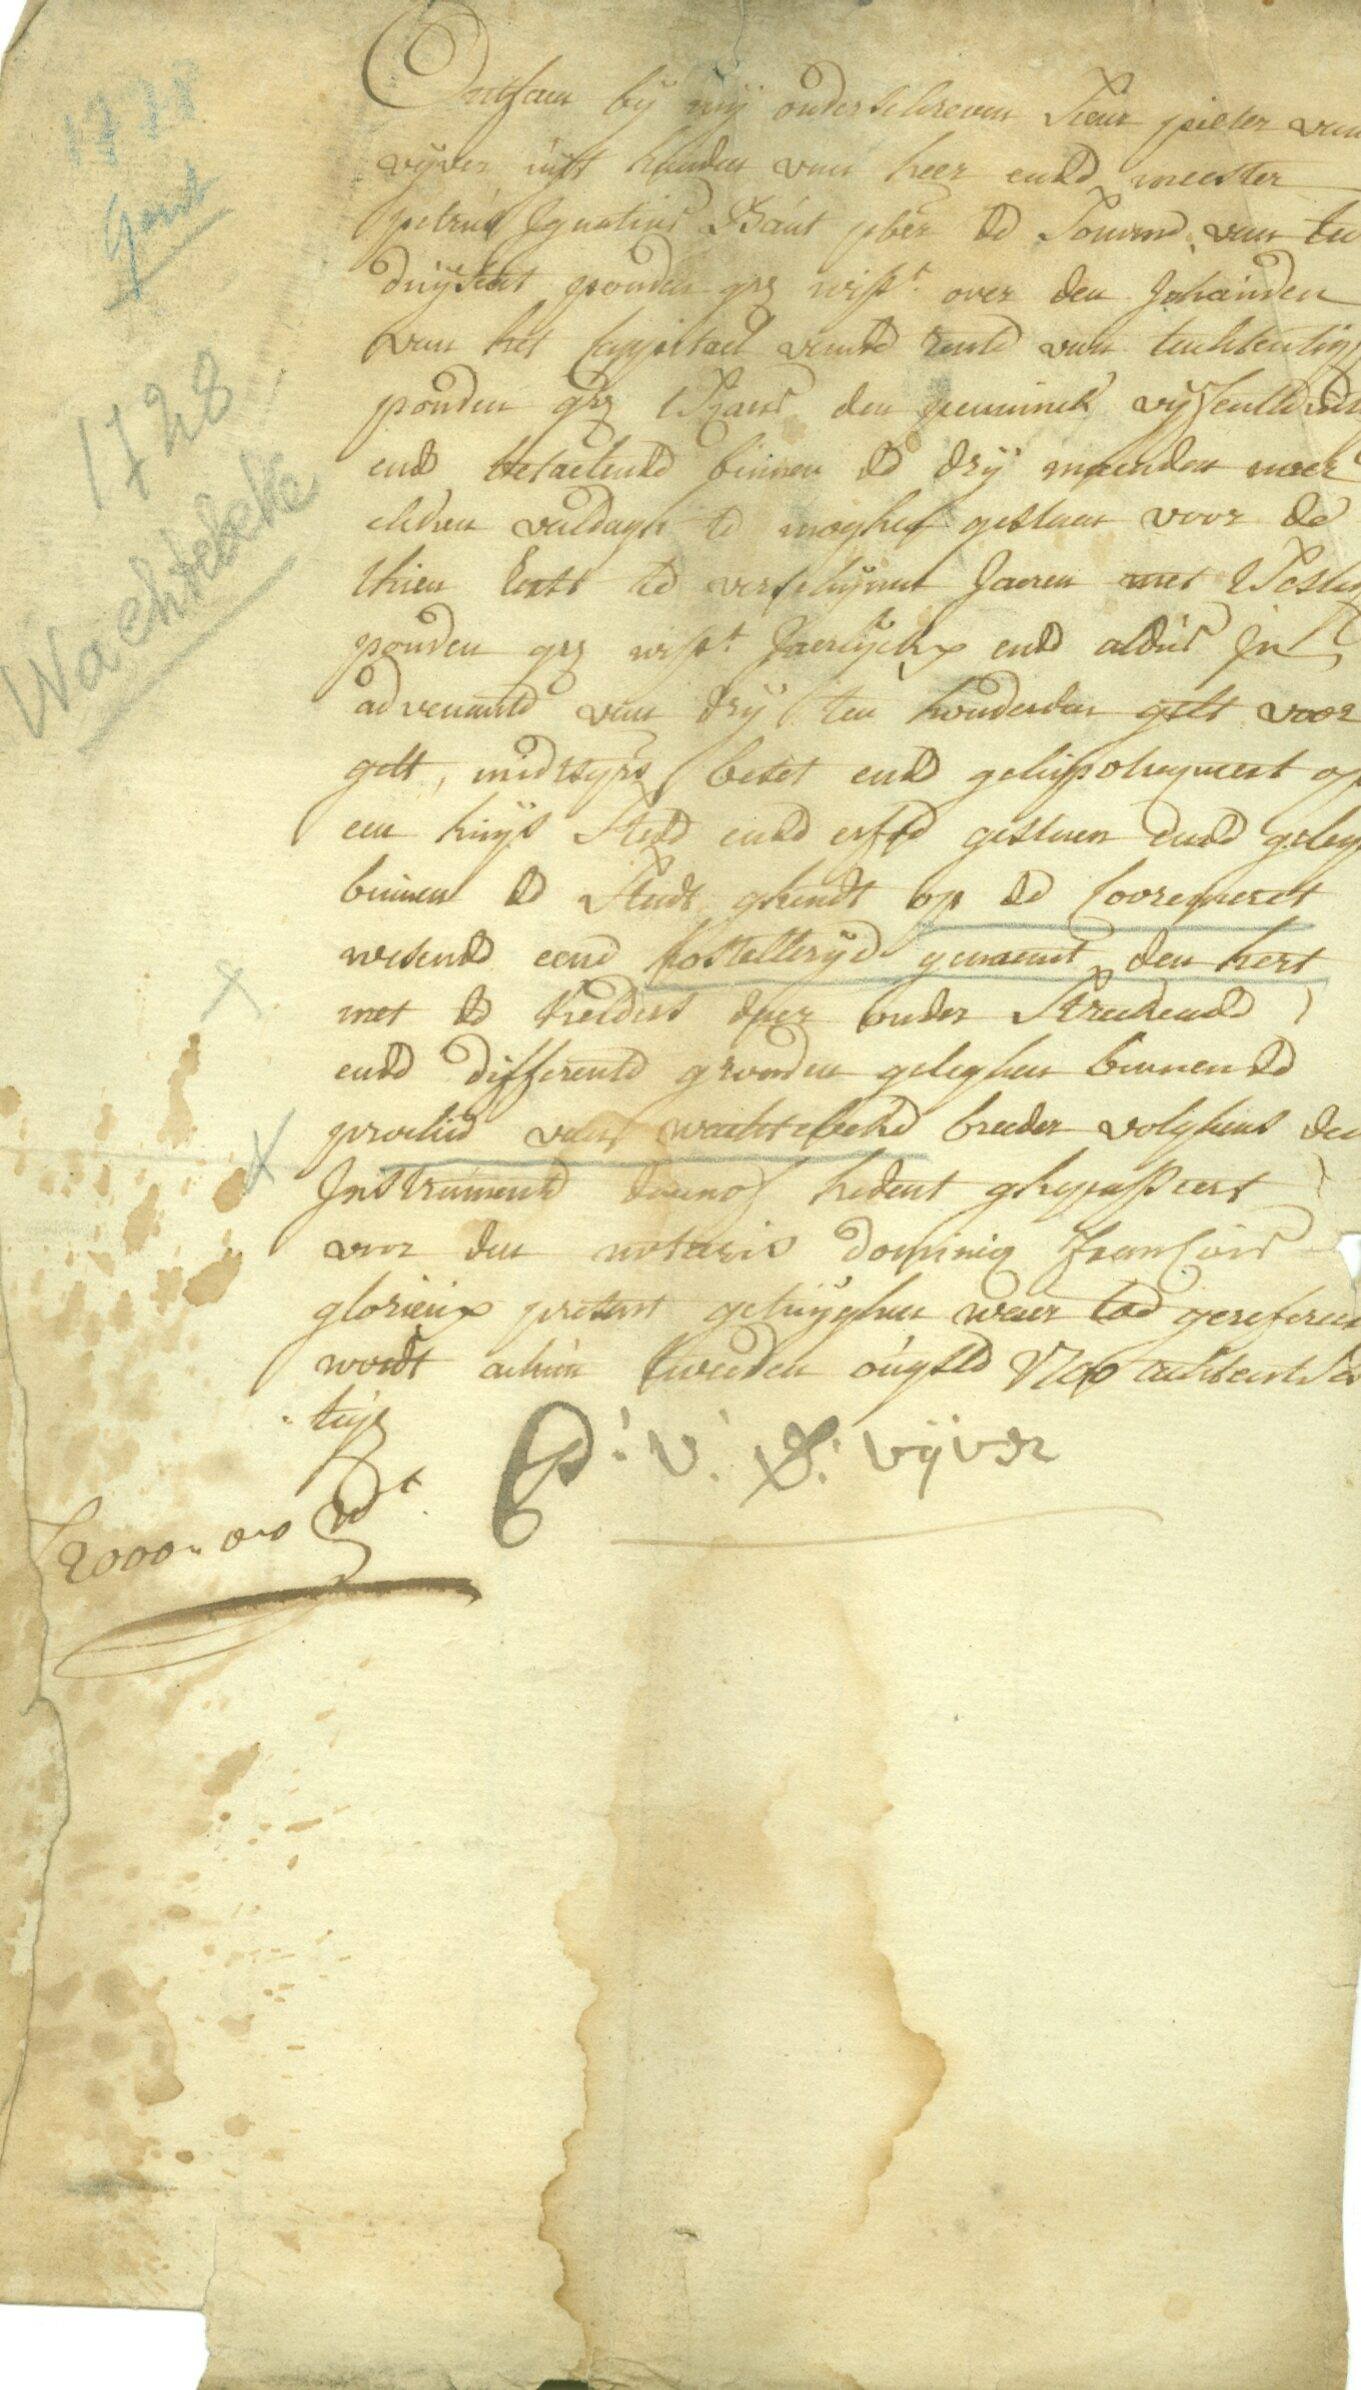 1728
Gent
1728
Wachtebeke
Ontfaen bij mij onderschreven Sieur pieter van
vijver uijt handen van heer ende meester
petrus Ignatius Baut pber de Somme van
duijsent ponden grs wiss.t over den
van het cappitael rente van tachtentig
ponden grs tsiaers den penninck vijfentwin
ende betaelende binnen de drij maenden naer
elcken valdagh te moghen gestaen voor de
thien eerste te verschijnen Jaeren met tSestig
ponden grs wiss.t Jaerlijckx ende aldus In
advenante van drij ten honderden gelt voor
gelt, midtsgrs beset ende gehipotequeert op
een huijs stede ende erfve gestaen ende geleg
binnen de Stadt ghendt op de Cooremerct
wesende eene hostellerije genaemt den hert
met de kelders daer onder streckende
ende differente gronden geleghen binnen de
prochie van wachtebeke breeder volghens den
Instrumente daerof hedent ghepasseert
voor den notaris dominiq francois
glorieux present getuijghen waer toe gerefereert
wordt actum tweeden ougste 1728
P: V: D: vijver
2000-0-0